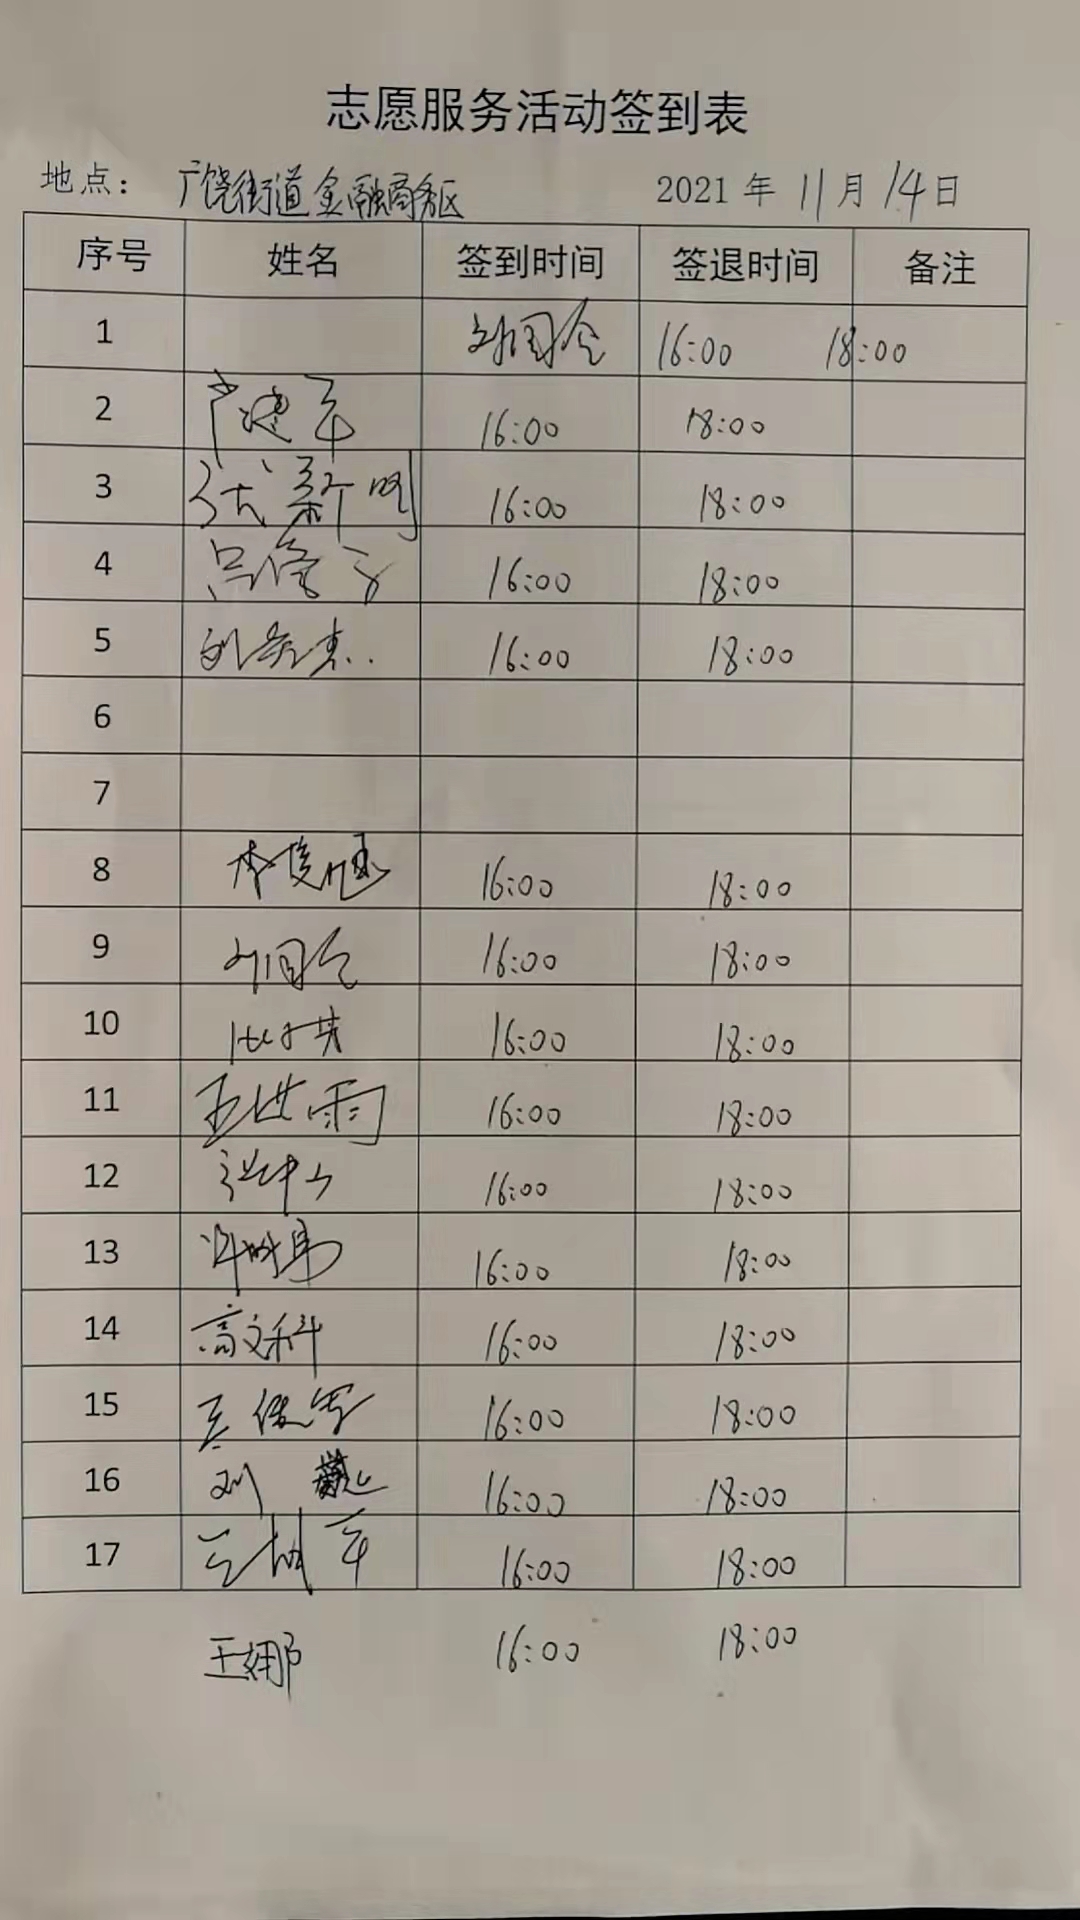 志愿服务活动签到表
地点： 广饶街道金融商务区 2021 年 11 月 14 日
序号 姓名 签到时间 签退时间 备注
1 刘国全 16:00 18:00
2 16:00 18:00
3 张新明 16:00 18:00
4 16:00 18:00
5 16:00 18:00
6
7
8 16:00 18:00
9 刘国全 16:00 18:00
10 16:00 18:00
11 王洪雨 16:00 18:00
12 16:00 18:00
13 16:00 18:00
14 高文科 16:00 18:00
15 16:00 18:00
16 刘 16:00 18:00
17 16:00 18:00
王娜 16:00 18:00